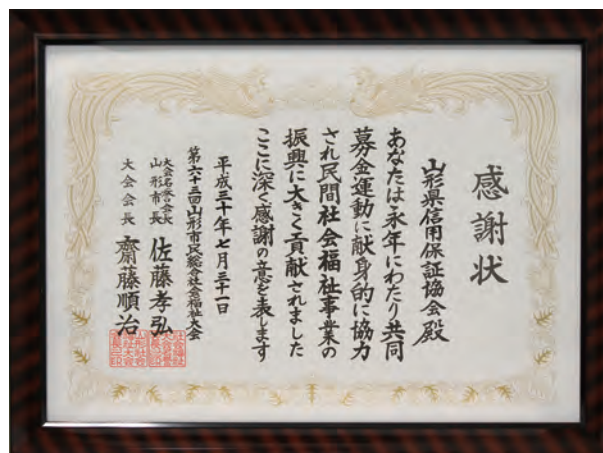 感謝状
山形県信用保証協会殿
あなたは永年にわたり共同
募金運動に献身的に協力
され民間社会福祉事業の
振興に大きく貢献されました
ここに深く感謝の意を表します
平成三十年七月三十一日
第六十三回山形市民総合社会福祉大会
大会名誉会長
山形市長 佐藤孝弘
大会会長 齋藤順治